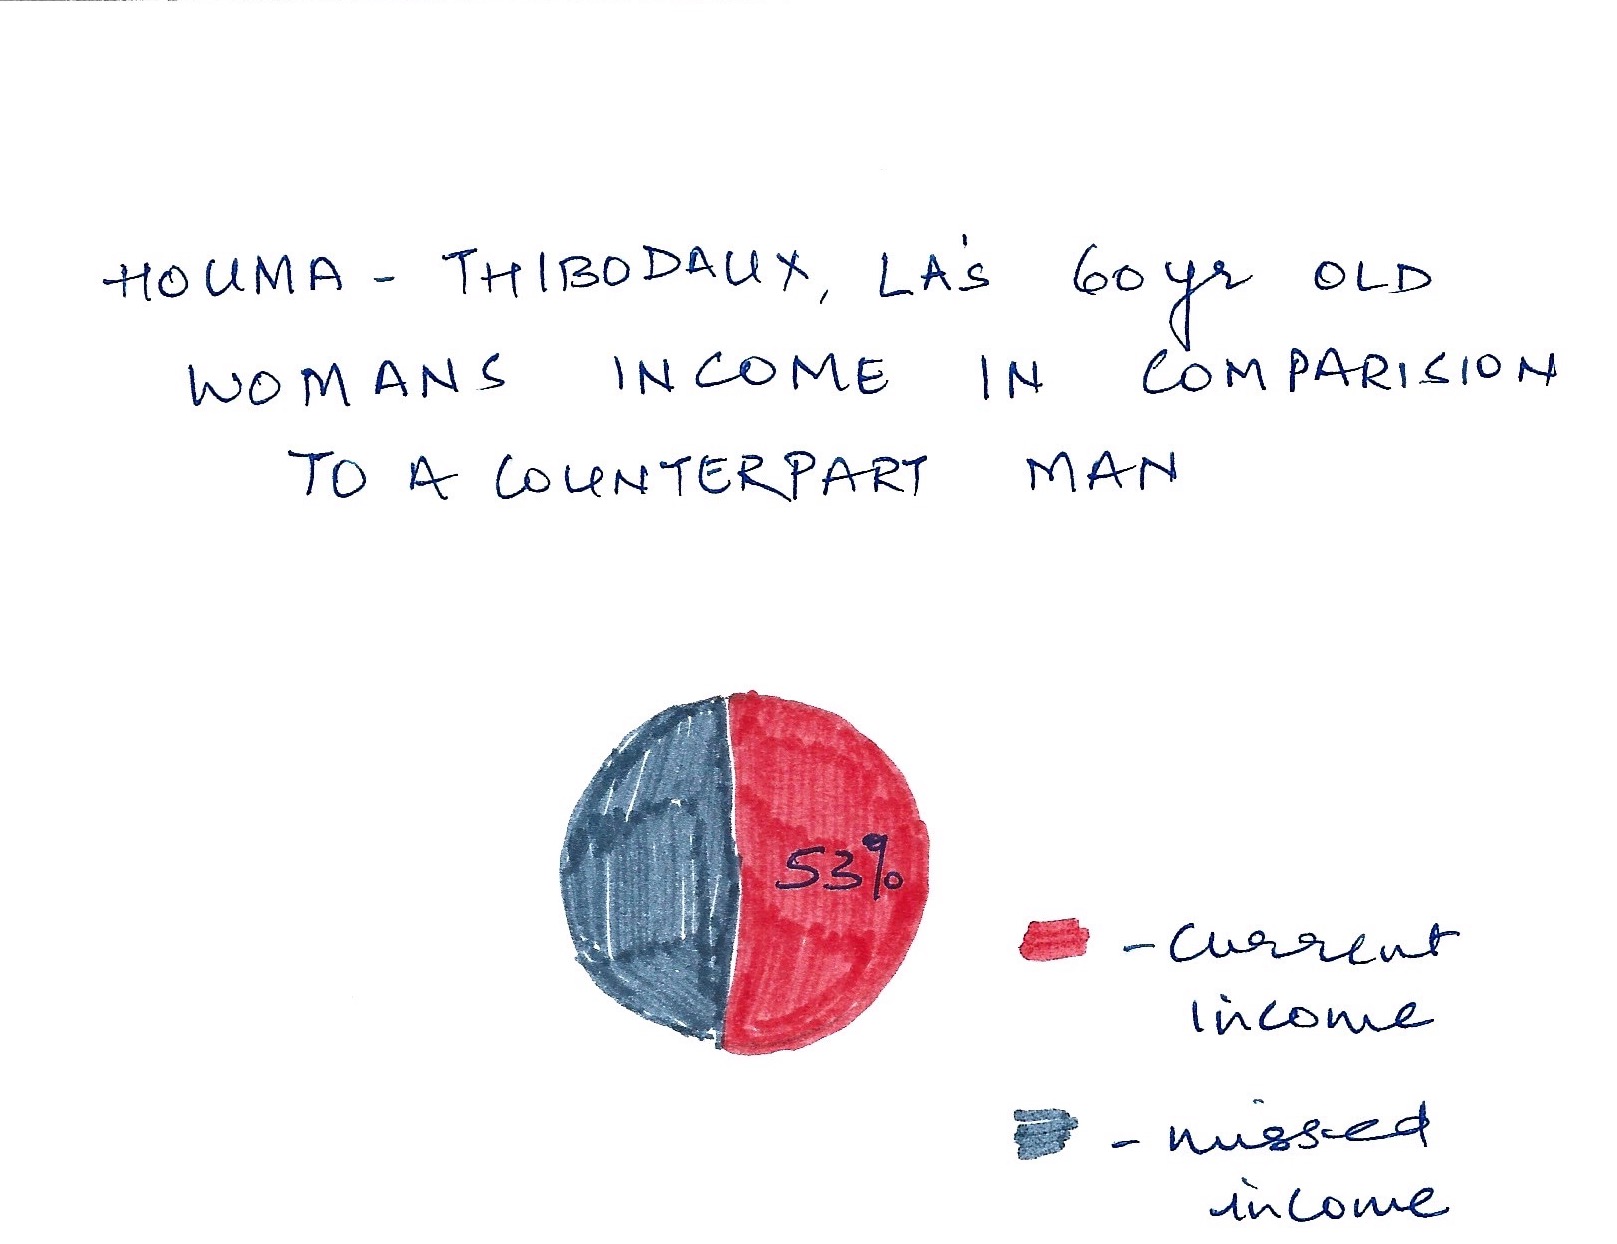 HOUMA - THIBODAUX, LA'S 60yr OLD
WOMANS INCOME IN COMPARISION
TO A COUNTERPART MAN
53%
- current
income
- missed
income